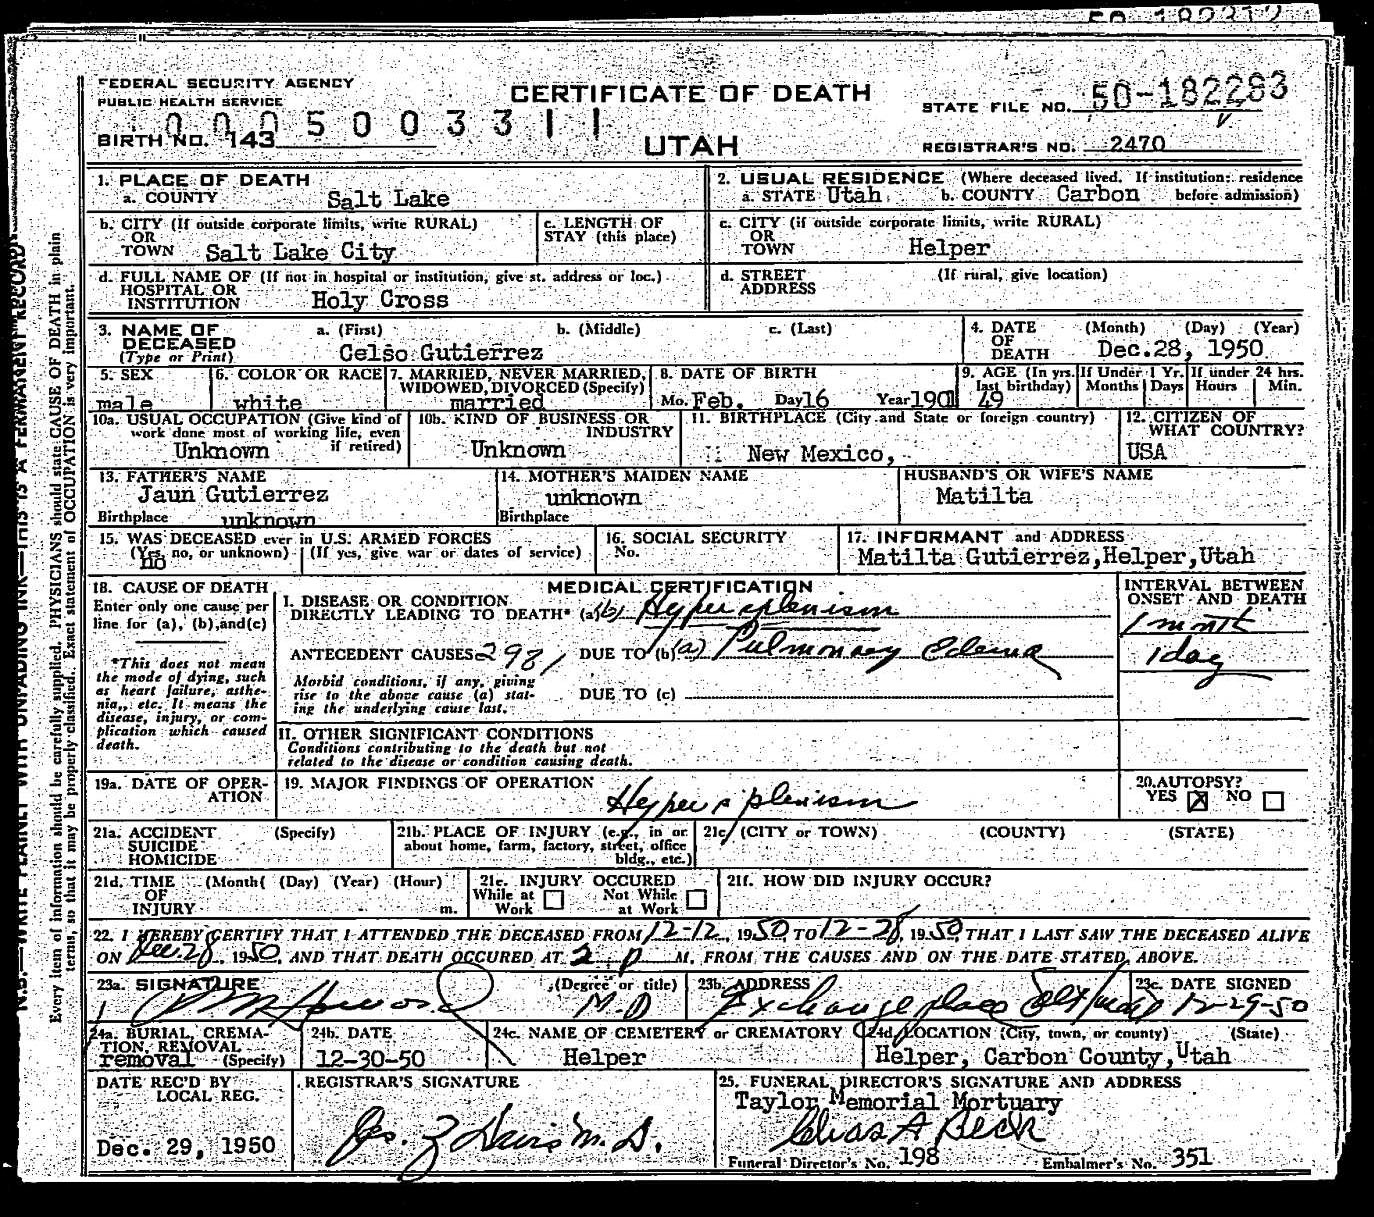 FEDERAL SECURITY AGENCY
PUBLIC HEALTH SERVICE
CERTIFICATE OF DEATH
UTAH
STATE FILE NO. 50-182283
BIRTH NO. 143
0 0 0 5 0 0 3 3 1 1
REGISTRAR'S NO. 2470
N.B.—WRITE PLAINLY WITH UNFADING INK—THIS IS A PERMANENT RECORD
Every item of information should be carefully supplied. PHYSICIANS should state CAUSE OF DEATH in plain
terms, so that it may be properly classified. Exact statement of OCCUPATION is very important.
1. PLACE OF DEATH
a. COUNTY Salt Lake
2. USUAL RESIDENCE (Where deceased lived. If institution: residence
a. STATE Utah b. COUNTY Carbon before admission)
b. CITY (If outside corporate limits, write RURAL)
OR
TOWN Salt Lake City
c. LENGTH OF
STAY (this place)
c. CITY (if outside corporate limits, write RURAL)
OR
TOWN Helper
d. FULL NAME OF (If not in hospital or institution, give st. address or loc.)
HOSPITAL OR
INSTITUTION Holy Cross
d. STREET (If rural, give location)
ADDRESS
3. NAME OF DECEASED
(Type or Print)
a. (First) b. (Middle) c. (Last)
Celso Gutierrez
4. DATE OF DEATH
(Month) (Day) (Year)
Dec.28, 1950
5. SEX
male
6. COLOR OR RACE
white
7. MARRIED, NEVER MARRIED,
WIDOWED, DIVORCED (Specify)
married
8. DATE OF BIRTH
Mo. Feb. Day 16 Year 1901
9. AGE (In yrs. last birthday)
49
If Under 1 Yr. Months Days
If under 24 hrs. Hours Min.
10a. USUAL OCCUPATION (Give kind of
work done most of working life, even
if retired)
Unknown
10b. KIND OF BUSINESS OR
INDUSTRY
Unknown
11. BIRTHPLACE (City and State or foreign country)
New Mexico,
12. CITIZEN OF
WHAT COUNTRY?
USA
13. FATHER'S NAME
Jaun Gutierrez
Birthplace unknown
14. MOTHER'S MAIDEN NAME
unknown
Birthplace
HUSBAND'S OR WIFE'S NAME
Matilta
15. WAS DECEASED ever in U.S. ARMED FORCES
(Yes, no, or unknown) (If yes, give war or dates of service)
no
16. SOCIAL SECURITY
No.
17. INFORMANT and ADDRESS
Matilta Gutierrez,Helper,Utah
18. CAUSE OF DEATH
Enter only one cause per
line for (a), (b),and(c)
*This does not mean
the mode of dying, such
as heart failure, asthe-
nia,, etc. It means the
disease, injury, or com-
plication which caused
death.
MEDICAL CERTIFICATION
I. DISEASE OR CONDITION
DIRECTLY LEADING TO DEATH* (a) (b) Hypersplenism
ANTECEDENT CAUSES 298 1 DUE TO (b) (a) Pulmonary Edema
Morbid conditions, if any, giving
rise to the above cause (a) stat-
ing the underlying cause last.
DUE TO (c)
INTERVAL BETWEEN
ONSET AND DEATH
1 month
1 day
II. OTHER SIGNIFICANT CONDITIONS
Conditions contributing to the death but not
related to the disease or condition causing death.
19a. DATE OF OPER-
ATION
19. MAJOR FINDINGS OF OPERATION
Hypersplenism
20. AUTOPSY?
YES X NO
21a. ACCIDENT
SUICIDE
HOMICIDE
(Specify)
21b. PLACE OF INJURY (e.g., in or
about home, farm, factory, street, office
bldg., etc.)
21c. (CITY or TOWN) (COUNTY) (STATE)
21d. TIME (Month( (Day) (Year) (Hour)
OF
INJURY m.
21e. INJURY OCCURED
While at Work Not While at Work
21f. HOW DID INJURY OCCUR?
22. I HEREBY CERTIFY THAT I ATTENDED THE DECEASED FROM 12-12, 1950 TO 12-28, 1950, THAT I LAST SAW THE DECEASED ALIVE
ON Dec.28, 1950, AND THAT DEATH OCCURED AT 2 p M, FROM THE CAUSES AND ON THE DATE STATED ABOVE.
23a. SIGNATURE (Degree or title)
M.D
23b. ADDRESS
Exchange place
23c. DATE SIGNED
12-29-50
24a. BURIAL, CREMA-
TION, REMOVAL
removal (Specify)
24b. DATE
12-30-50
24c. NAME OF CEMETERY or CREMATORY
Helper
24d. LOCATION (City, town, or county) (State)
Helper, Carbon County,Utah
DATE REC'D BY
LOCAL REG.
Dec. 29, 1950
REGISTRAR'S SIGNATURE
25. FUNERAL DIRECTOR'S SIGNATURE AND ADDRESS
Taylor Memorial Mortuary
Chas A Beck
Funeral Director's No. 198 Embalmer's No. 351